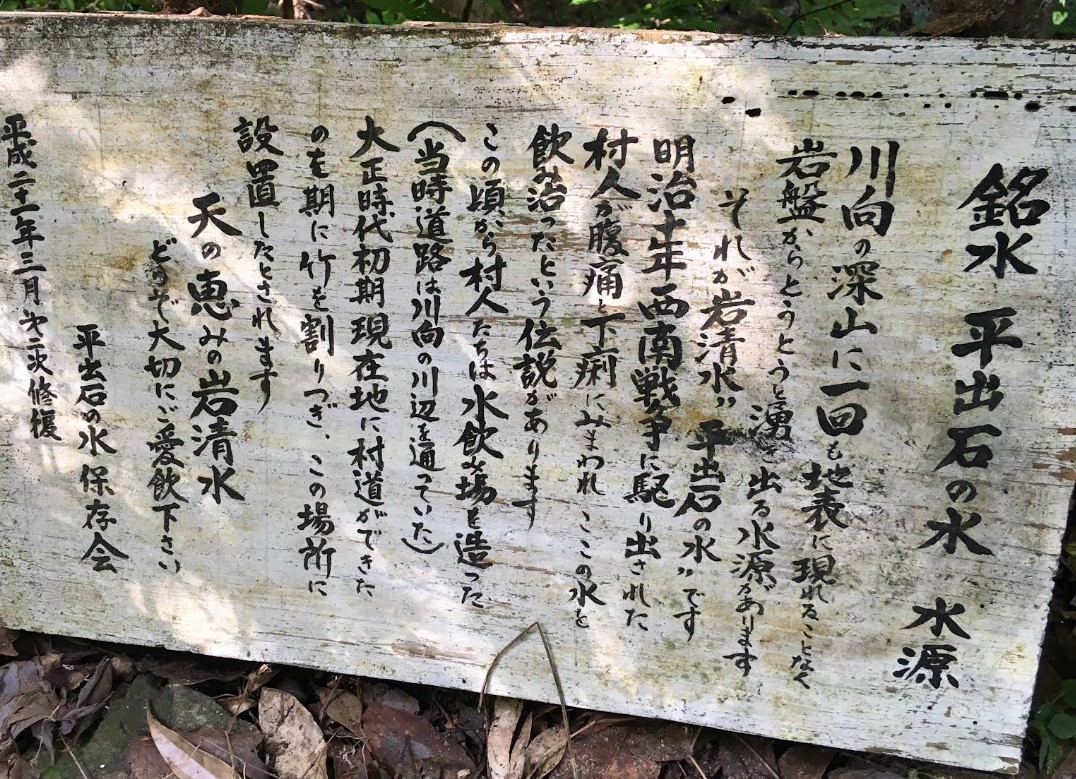 銘水 平出石の水 水源
川向の深山に一回も地表に現れることなく
岩盤からとうとうとうと湧き出る水源があります
それが岩清水〟平出石の水〟です
明治十年西南戦争に駆り出された
村人が腹痛と下痢にみまわれここの水を
飲み治ったという伝説があります
この頃から村人たちは水飲み場を造った
（当時道路は川向の川辺を通っていた）
大正時代初期現在地に村道ができた
のを期に竹を割りつぎ、この場所に
設置したとされます
天の恵みの岩清水
どうぞ大切にご愛飲下さい
平出石の水保存会
平成二十一年三月第二次修復